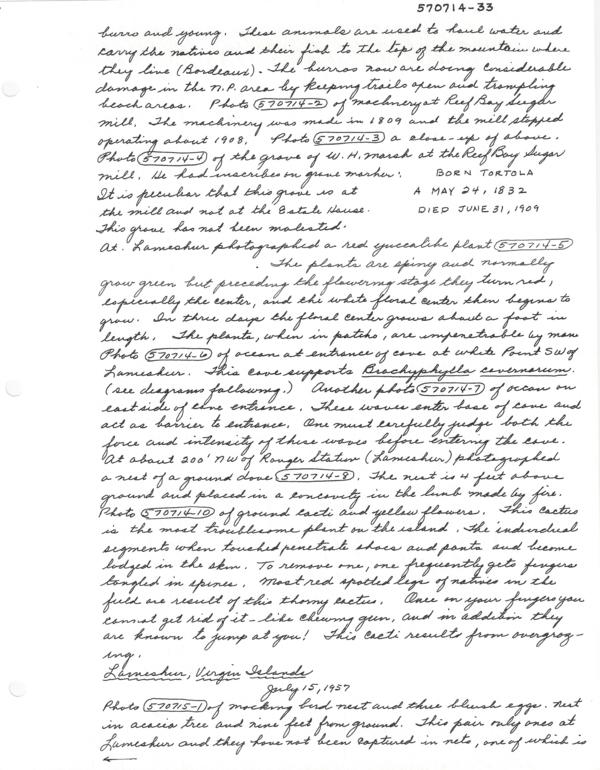 570714-33
burro and young. These animals are used to haul water and
carry the natives and their fish to the top of the mountain where
they live (Bordeaux). The burros now are doing considerable
damage in the N.P. area by keeping trails open and trampling
beach areas. Photo (570714-2) of machinery at Reef Bay Sugar
mill. The machinery was made in 1809 and the mill stopped
operating about 1908. Photo (570714-3) a close-up of above.
Photo (570714-4) of the grave of W.H. Marsh at the Reef Bay Sugar
mill. He had inscribed on grave marker: BORN TORTOLA
It is peculiar that this grave is at A MAY 24, 1832
the mill and not at the Estate House. DIED JUNE 31, 1909
This grave has not been molested.
At Lameshur photographed a red yuccalike plant (570714-5)
. The plants are spiny and normally
grow green but preceding the flowering stage they turn red,
especially the center, and the white floral center then begins to
grow. In three days the floral center grows about a foot in
length. The plants, when in patchs, are impenetrable by man
Photo (570714-6) of ocean at entrance of cave at White Point SW of
Lameshur. This cave supports Brachyphylla cavernarum.
(see diagrams following.) Another photo (570714-7) of ocean on
east side of cave entrance. These waves enter base of cave and
act as barrier to entrance. One must carefully judge both the
force and intensity of these waves before entering the cave.
At about 200' NW of Ranger Station (Lameshur) photographed
a nest of a ground dove (570714-8). The nest is 4 feet above
ground and placed in a concavity in the limb made by fire.
Photo (570714-10) of ground cacti and yellow flowers. This cactus
is the most troublesome plant on the island. The individual
segments when touched penetrate shoes and pants and become
lodged in the skin. To remove one, one frequently gets fingers
tangled in spines. Most red spotted legs of natives in the
field are result of this thorny cactus. Once on your fingers you
cannot get rid of it - like chewing gum, and in addition they
are known to jump at you! This cacti results from overgraz-
ing.
Lameshur, Virgin Islands
July 15, 1957
Photo (570715-1) of mocking bird nest and three bluish eggs. Nest
in acacia tree and nine feet from ground. This pair only ones at
Lameshur and they have not been captured in nets, one of which is